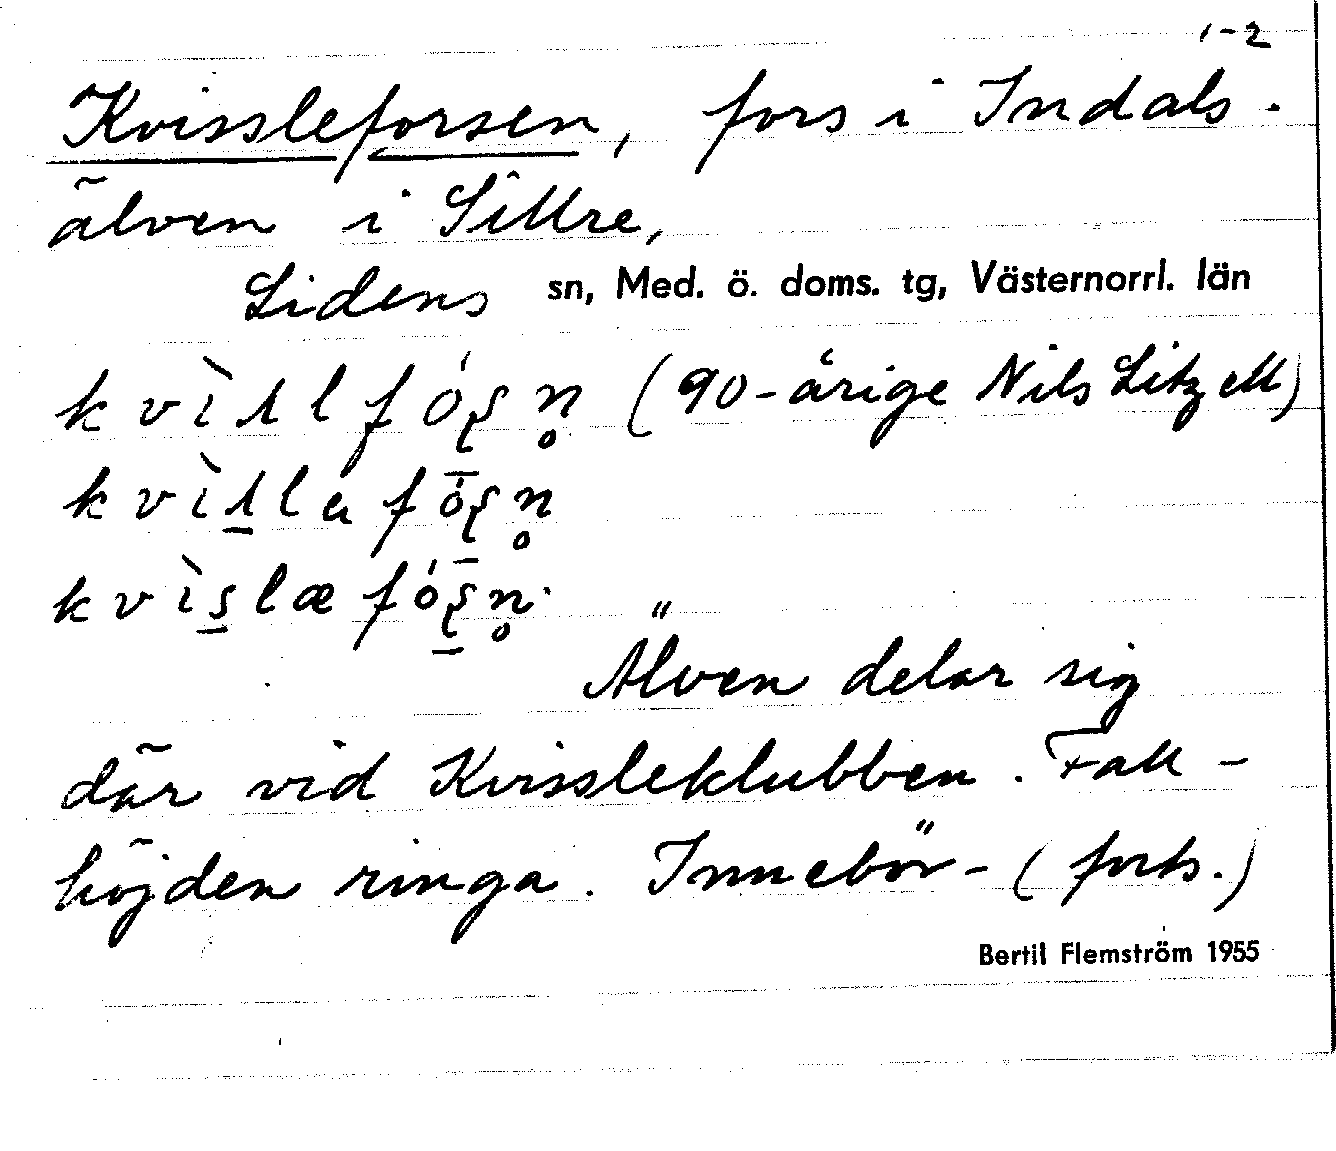 1-2
Kvissleforsen, fors i Indals-
älven i Sillre,
Lidens sn, Med. ö. doms. tg, Västernorrl. län
(90-årige Nils Litzell)
Älven delar sig
där vid Kvissleklubben. Fall-
höjden ringa. Innebör- (forts.)
Bertil Flemström 1955